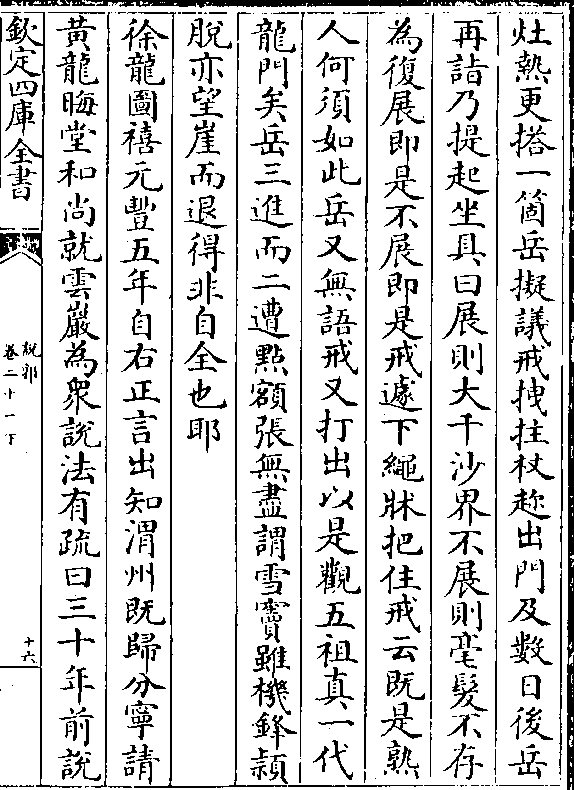 灶熱更搭一箇岳擬議戒拽拄杖趂出門及數日後岳
再詣乃提起坐具曰展則大千沙界不展則毫髮不存
為復展即是不展即是戒遽下繩牀把住戒云既是熟
人何須如此岳又無語戒又打出以是觀五祖真一代
龍門矣岳三進而二遭㸃額張無盡謂雪竇雖機鋒頴
脫亦望崖而退得非自全也耶
徐龍圖禧元豐五年自右正言出知渭州既歸分寧請
黃龍晦堂和尚就雲巖為衆說法有疏曰三十年前說
欽定四庫全書
說郛
卷二十一下
十六